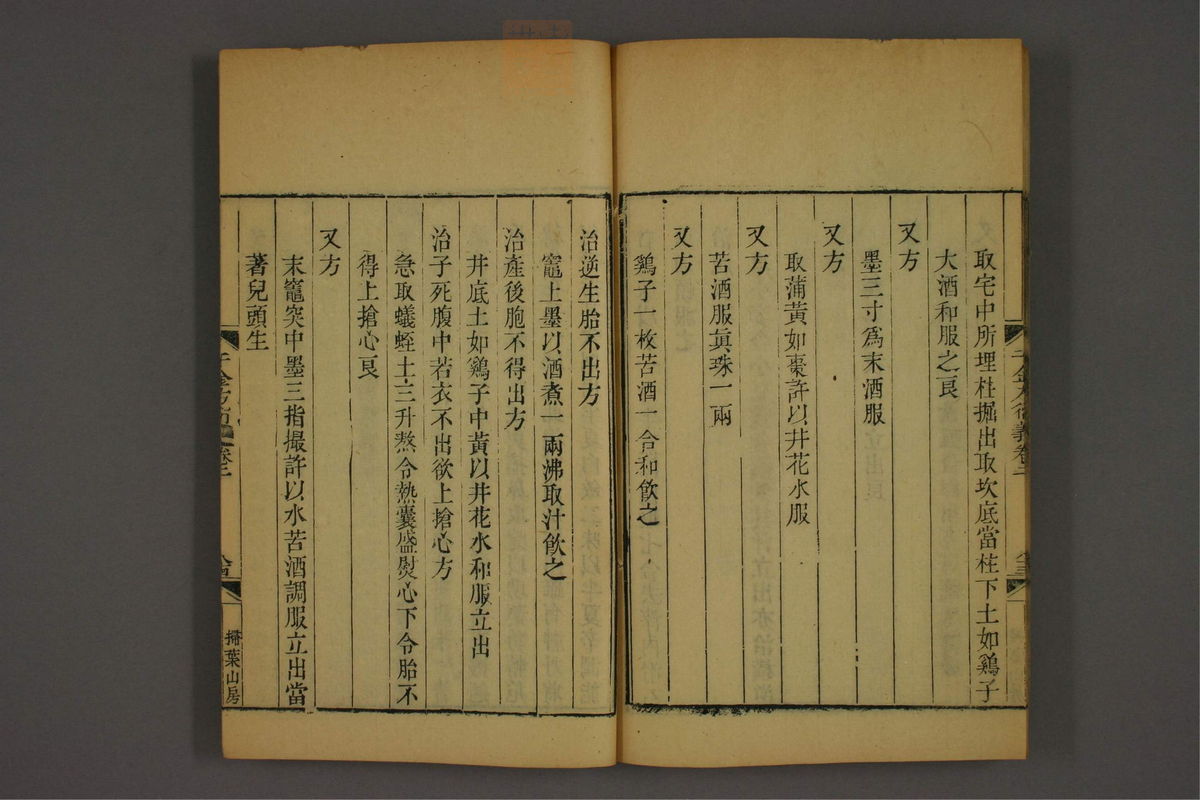 取宅中所埋柱掘出取坎底當柱下土如鷄子
大酒和服之良
又方
墨三寸爲末酒服
又方
取蒲黃如棗許以井花水服
又方
苦酒服眞珠一兩
又方
鷄子一枚苦酒一合和飲之
治逆生胎不出方
竈上墨以酒煮一兩沸取汁飲之
治產後胞不得出方
井底土如鷄子中黃以井花水和服立出
治子死腹中若衣不出欲上搶心方
急取蟻蛭土三升熬令熱囊盛熨心下令胎不
得上搶心良
又方
末竈突中墨三指撮許以水苦酒調服立出當
著兒頭生
掃葉山房